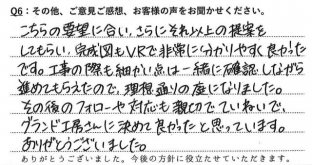 Q6：その他、ご意見ご感想、お客様の声をお聞かせください。
こちらの要望に合い、さらにそれ以上の提案を
してもらい、完成図もVRで非常に分かりやすく良かった
です。工事の際も細かい点は一緒に確認しながら
進めてもらえたので、理想通りの庭になりました。
その後のフォローや対応も親切でていねいで、
グランド工房さんに決めて良かったと思っています。
ありがとうございました。
ありがとうございました。今後の方針に役立たせていただきます。